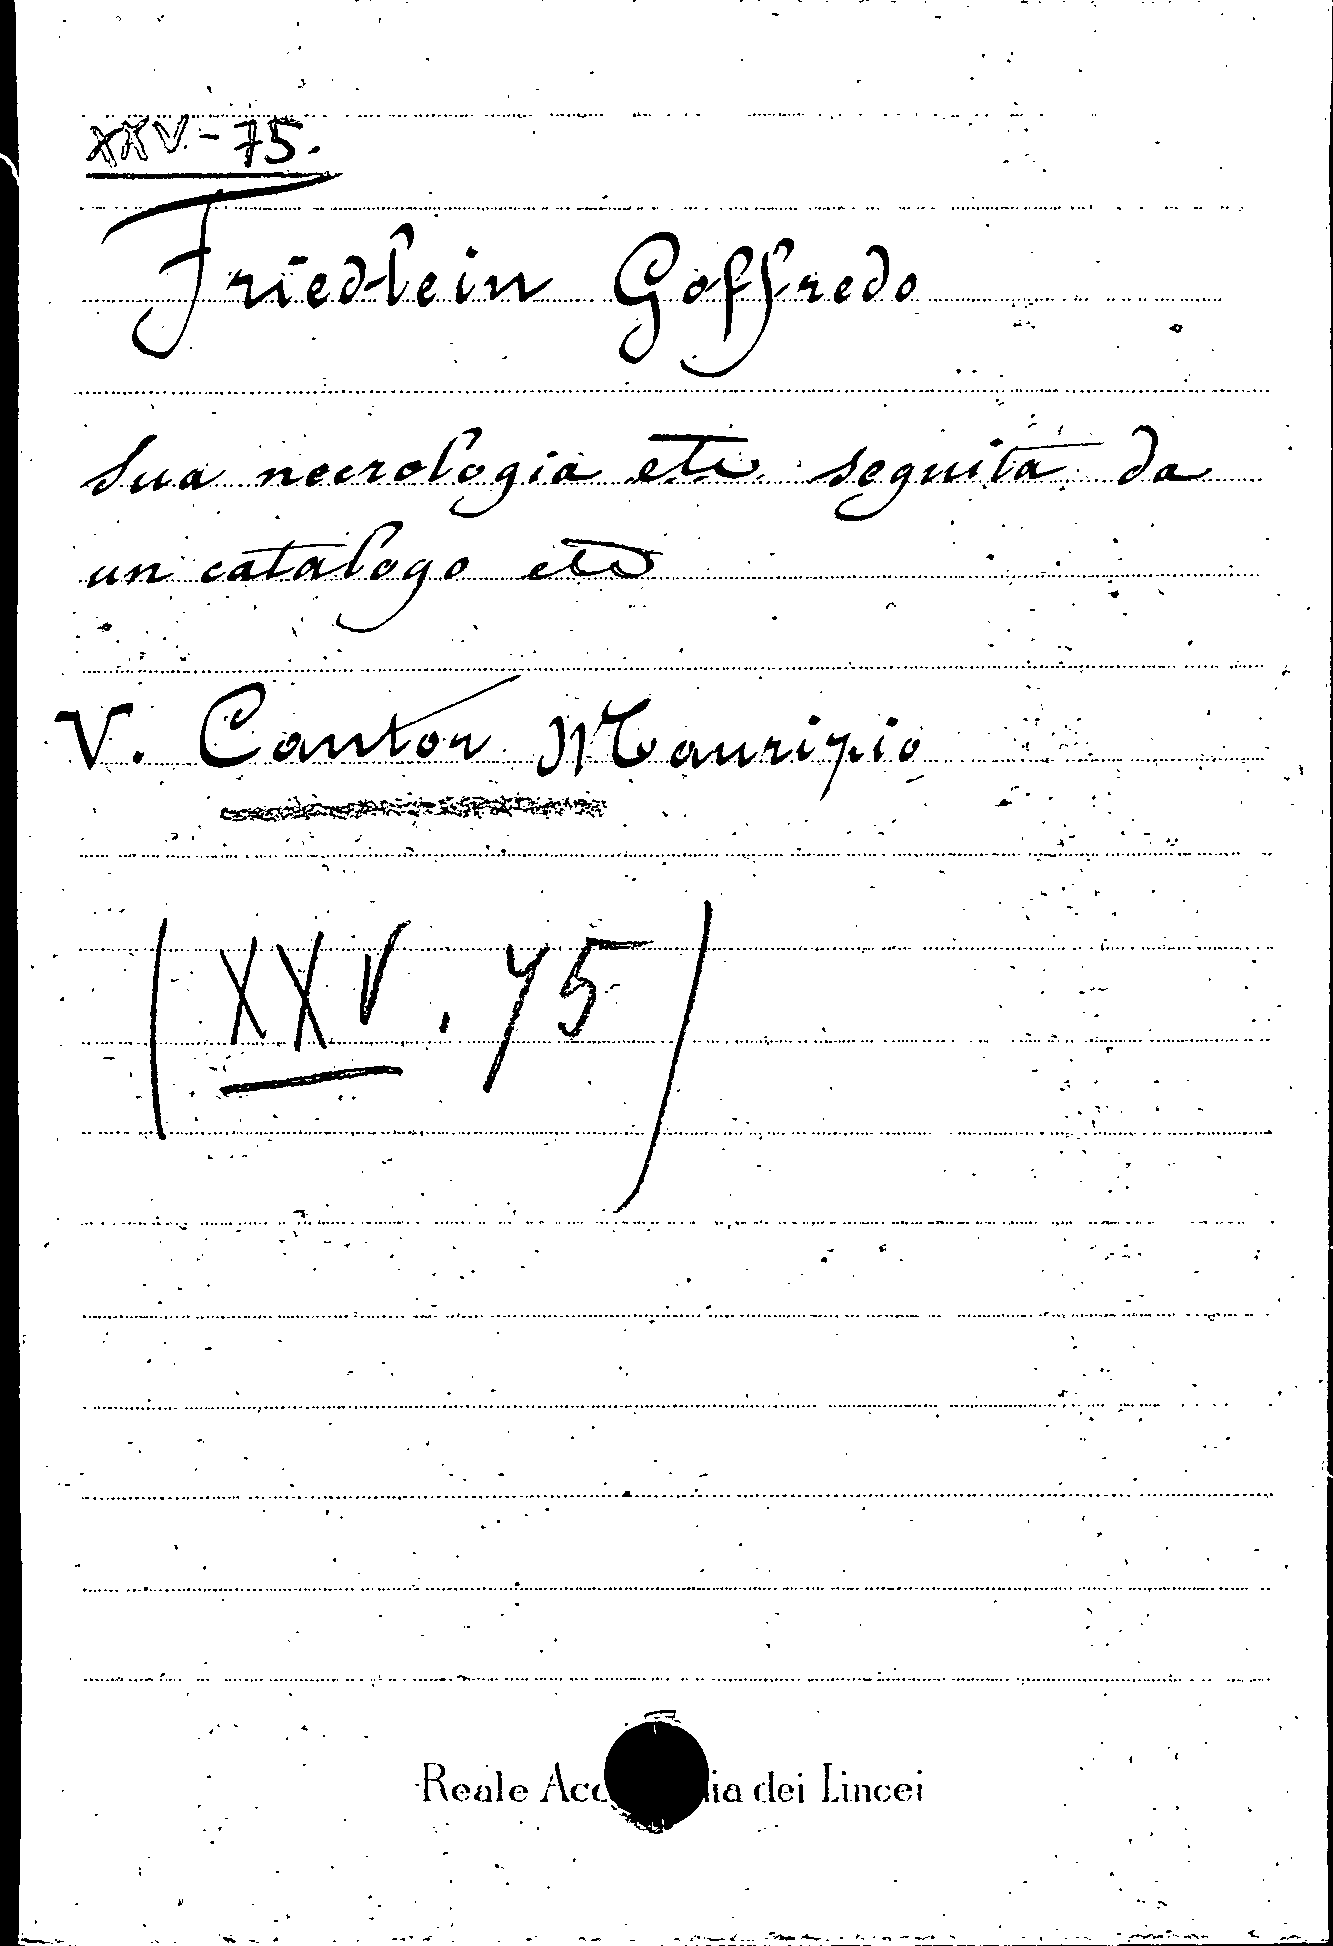 XXV-75.
Friedlein Goffredo
Sua necrologia etc seguita da
un catalogo etc
V. Cantor Maurizio
(XXV. 75)
Reale Acc ia dei Lincei